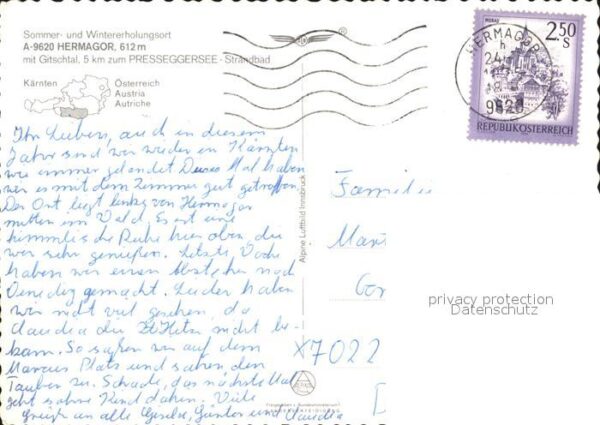 Sommer- und Wintererholungsort
A-9620 HERMAGOR, 612 m
mit Gitschtal, 5 km zum PRESSEGGERSEE - Strandbad
Kärnten
Österreich
Austria
Autriche
Ihr Lieben, auch in diesem
Jahr sind wir wieder in Kärnten
wie immer gelandet Dieses Mal haben
wir es mit dem Zimmer gut getroffen.
Der Ort liegt links von Hermagor
mitten im Wald. Es ist eine
himmlische Ruhe hier oben, die
wir sehr genießen. Letzte Woche
haben wir einen Abstecher nach
Venedig gemacht. Leider haben
wir nicht viel gesehen, da
Claudia die Hitze nicht be-
kam. So saßen wir auf dem
Marcus Platz und sahen den
Tauben zu. Schade, das nächste Mal
geht's ohne Kind dahin. Viele
Grüße an alle Gisela, Günter und Claudia
Alpine Luftbild Innsbruck
MURAU
2.50
S
REPUBLIK ÖSTERREICH
HERMAGOR
h
24.
9620
Familie
Mar
Ger
privacy protection
Datenschutz
X7022